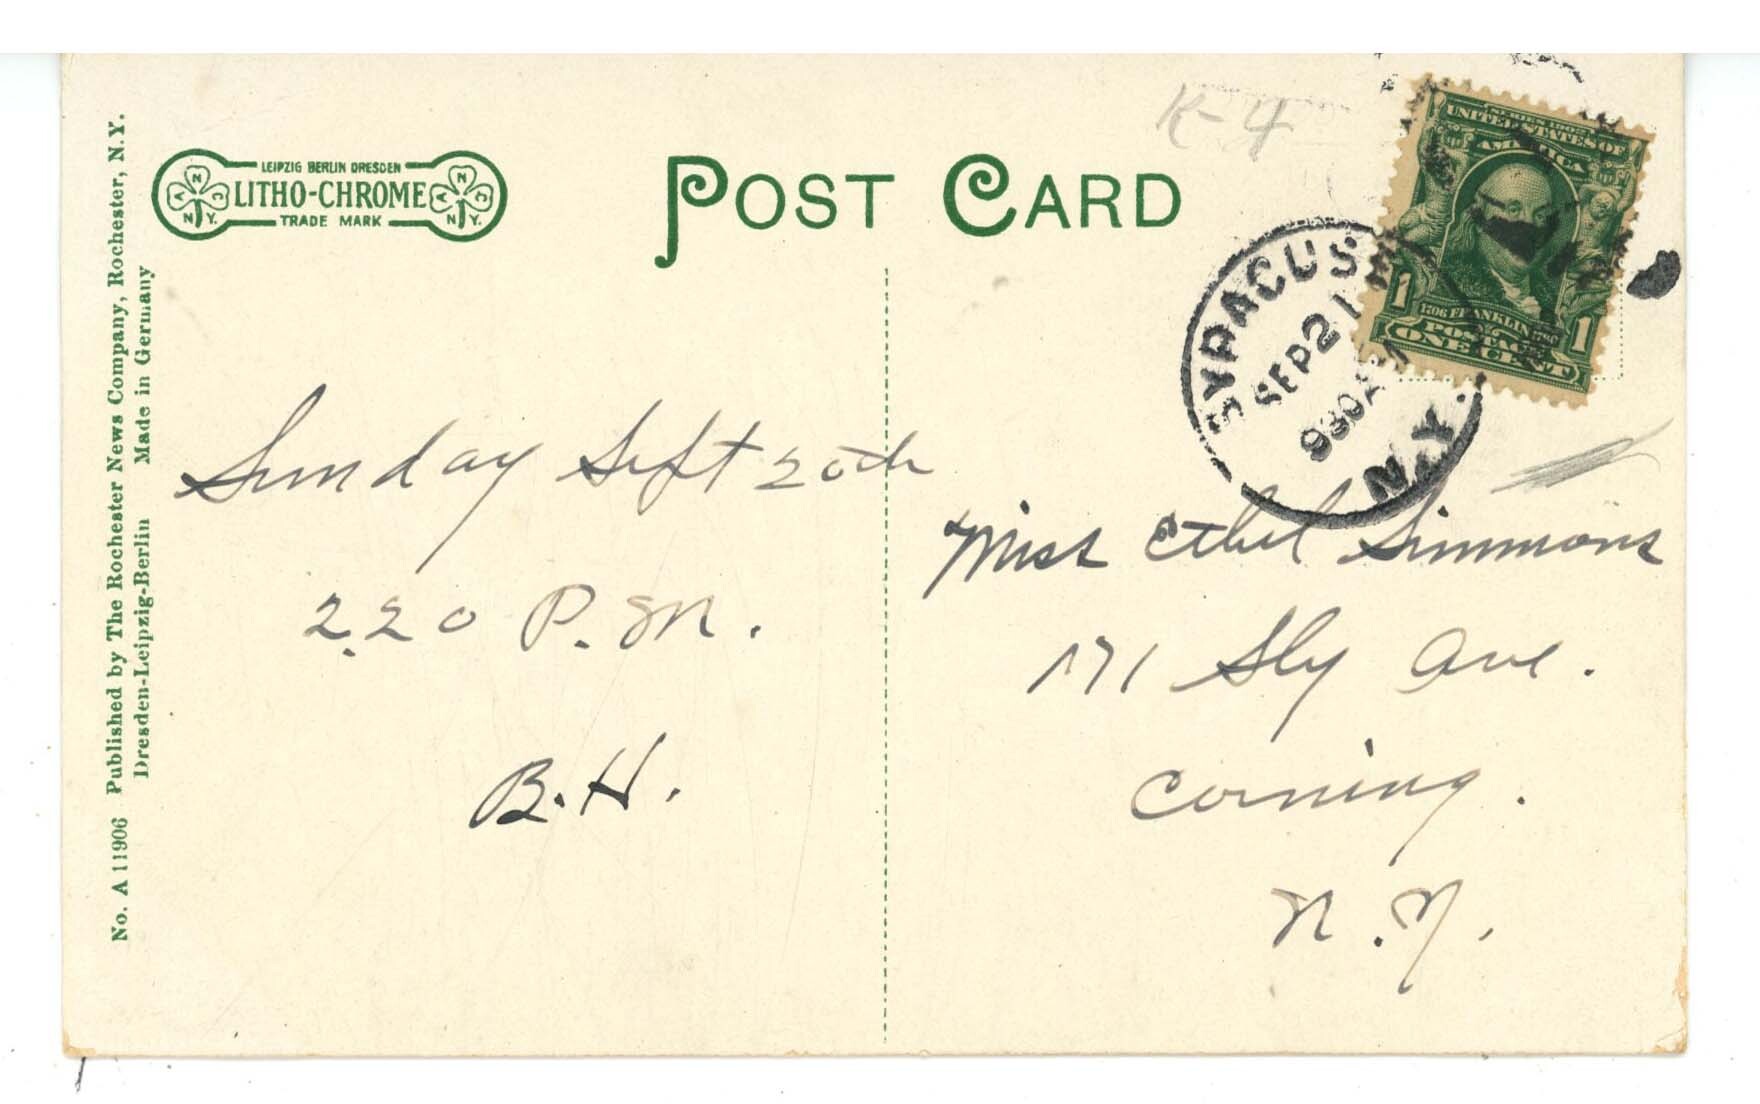 No. A 11906 Published by The Rochester News Company, Rochester, N.Y.
Dresden-Leipzig-Berlin Made in Germany
LEIPZIG BERLIN DRESDEN
LITHO-CHROME
TRADE MARK
A N C
N.Y.
A N C
N.Y.
POST CARD
K-4
SERIES 1902
UNITED STATES OF
AMERICA
1706 FRANKLIN 1790
POSTAGE
1 ONE CENT 1
SYRACUSE
SEP 21
930A
N.Y.
Sunday Sept 20th
2.20 P.M.
B.H.
Miss Ethel Simmons
171 Sly Ave.
Corning.
N.Y.